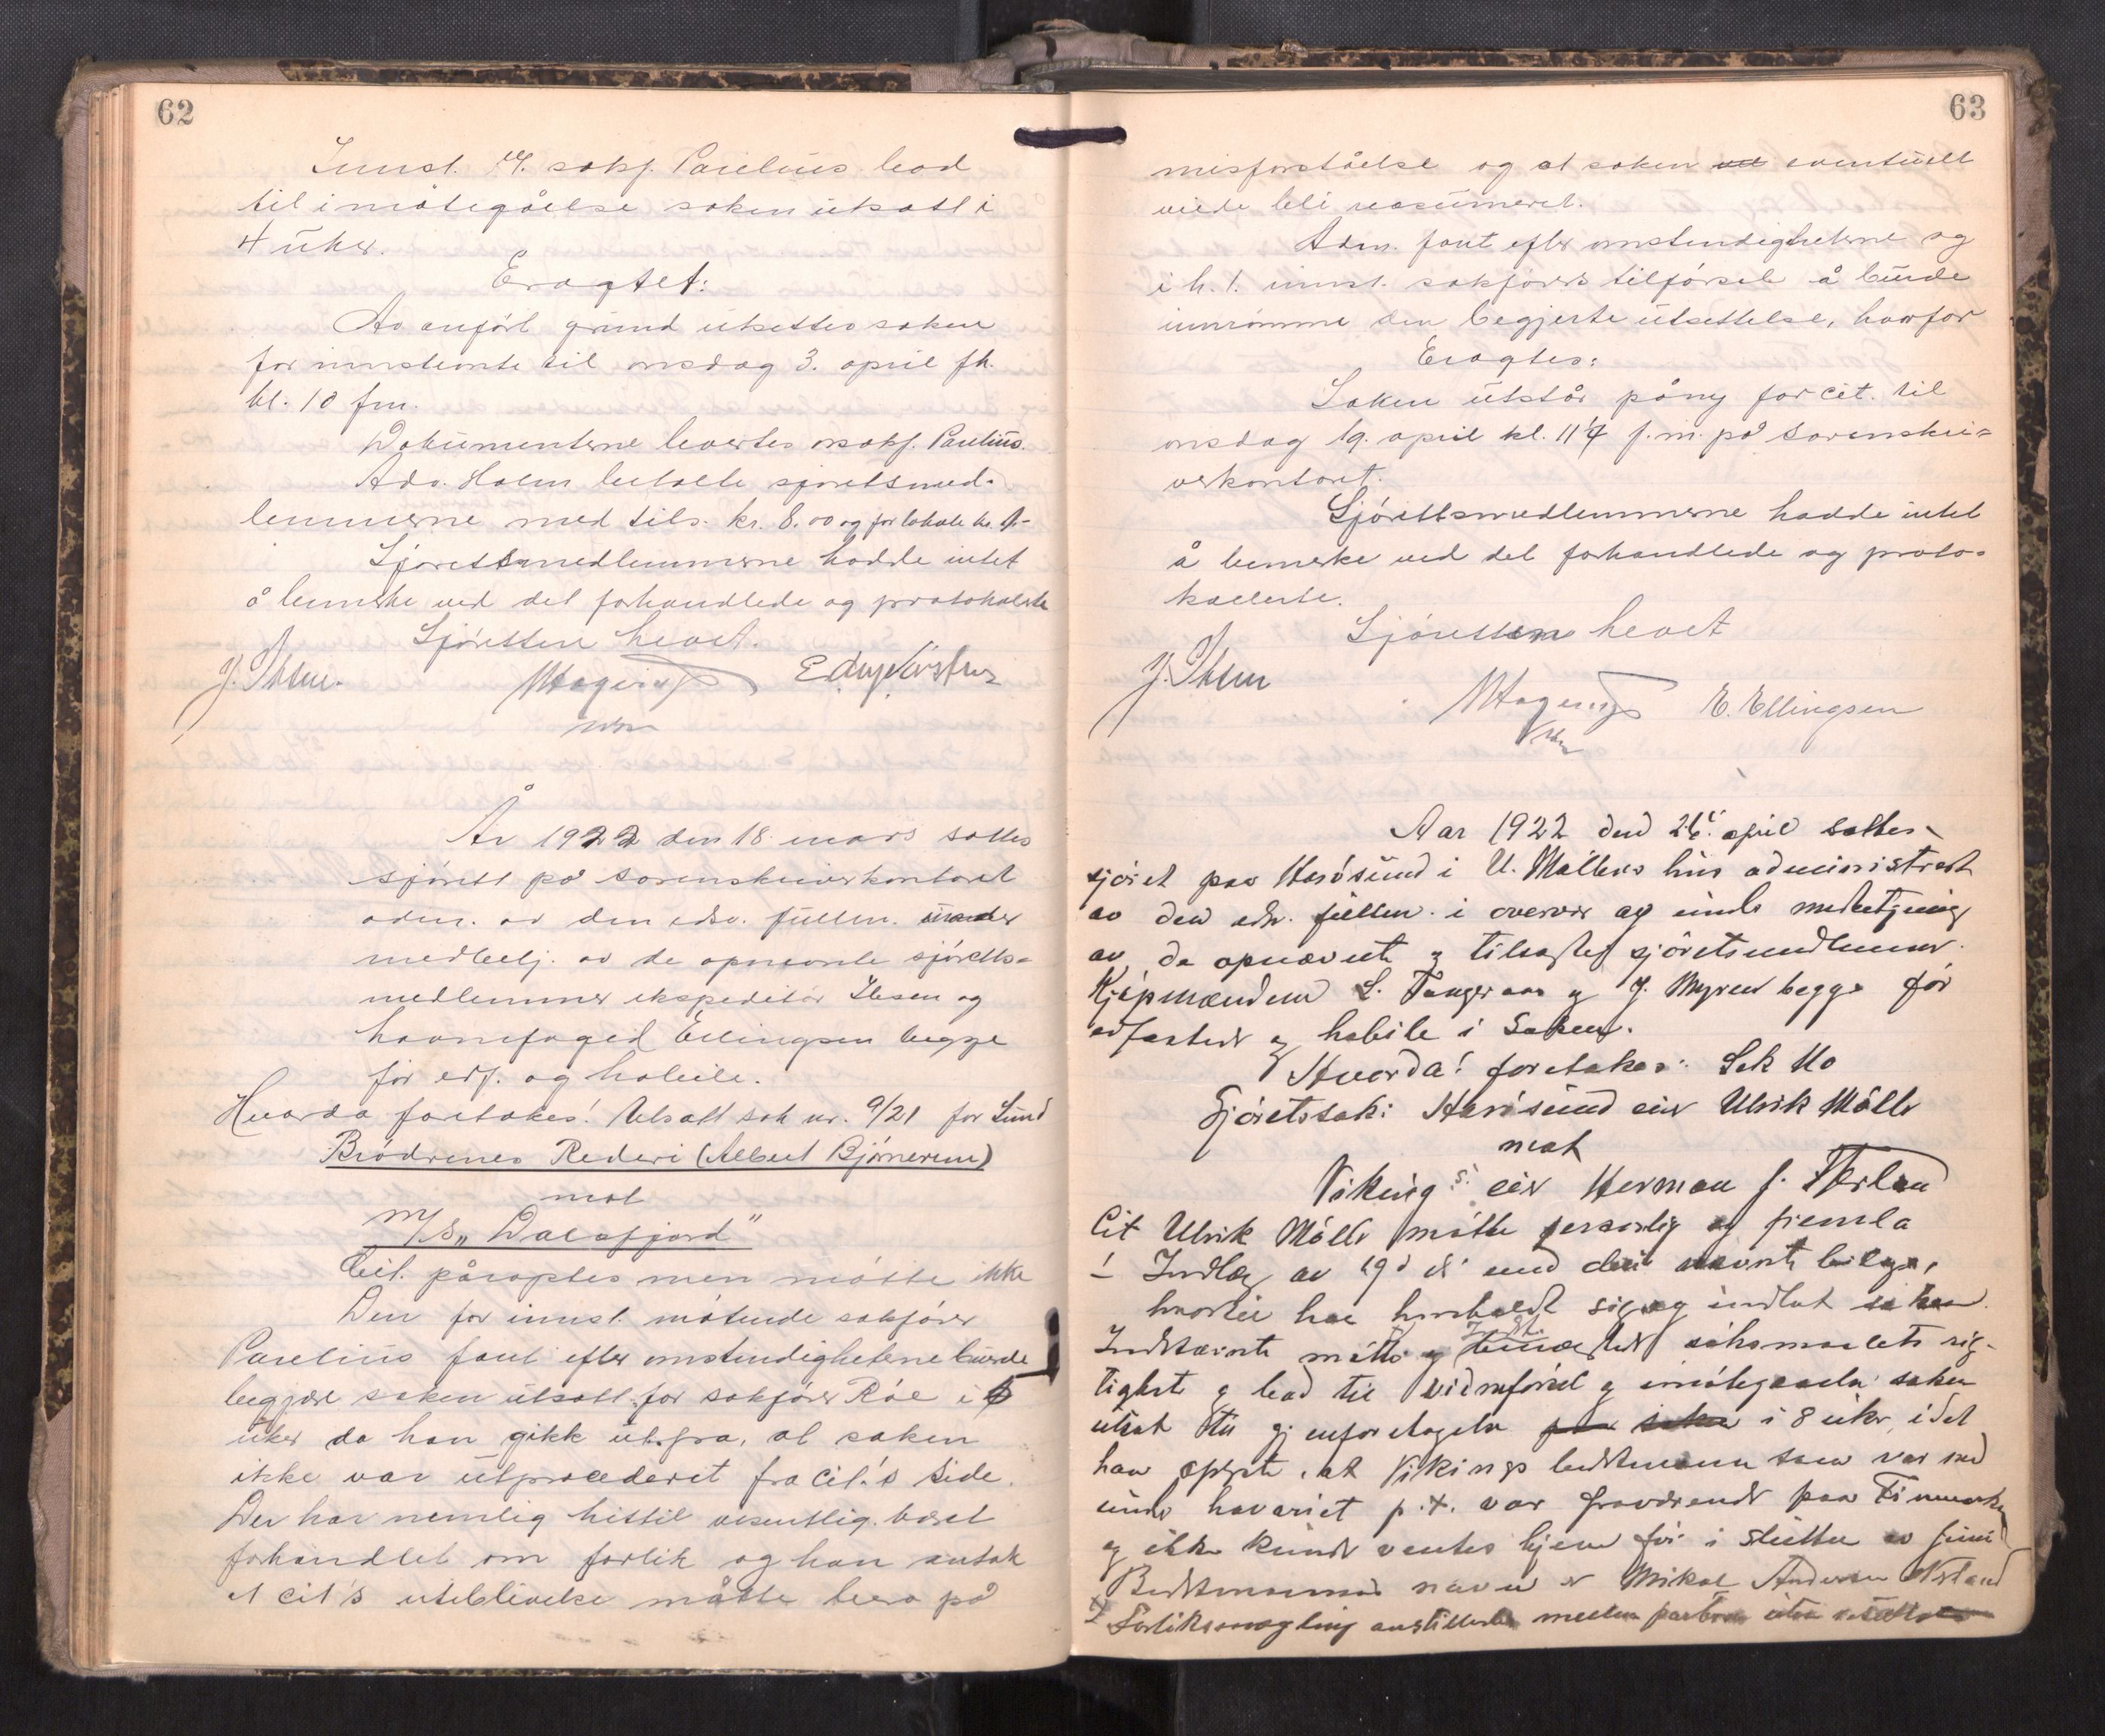 62
Innst. v. sakf. Parelius bad
til imøtegåelse saken utsatt i
4 uker.
Eragtet:
Av anført grund utsettes saken
for innstevnte til onsdag 3. april fk.
kl. 10 fm.
Dokumenterne levertes o.r.sakf. Parelius.
Adv. Holm betalte sjøretsmed-
lemmerne med tils. kr. 8.00 og for lokale kr.
Sjøretsmedlemmerne hadde intet
å bemerke ved det forhandlede og protokolerte
Sjøretten hevet.
J. Ibsen.
År 1922 den 18 mars sattes
sjørett på sorenskriverkontoret
adm. av den edsv. fullm. under
medbetj. av de opnevnte sjøretts-
medlemmer ekspeditør Ibsen og
havnefoged Ellingsen begge
før edf. og habile.
Hvorda foretokes: Utsatt sak nr. 9/21 for Lund
Brødrenes Rederi (Albert Bjørnerem)
mot
M/S „Dalsfjord"
Cit. påroptes men møtte ikke
Den for innst. møtende sakfører
Parelius fant efter omstendighetene burde
begjære saken utsatt for sakfører Röe i
uker da han gikk ut fra, at saken
ikke var utprocederet fra cit.'s side.
Der har nemlig hittil vesentlig været
forhandlet om forlik og han antok
at cit's uteblivelse måtte bero på
63
misforståelse og at saken vil eventuelt
vilde bli reasumeret.
Adm. fant efter omstendigheterne og
i h. t. innst. sakførers tilførsel å burde
innrømme den begjerte utsettelse, hvorfor
Eragtes:
Saken utstår påny for cit. til
onsdag 19. april kl. 11 f.m. på sorenskri-
verkontoret.
Sjørettsmedlemmerne hadde intet
å bemerke ved det forhandlede og proto-
kollerte.
Sjøretten hevet
J. Ibsen
E. Ellingsen
Aar 1922 den 26. april sattes
sjøret paa Harøsund i U. Møllers hus administrert
av den edsv. fullm. i overvær og under medbetjening
av de opnævnte og tilsagte sjøretsmedlemmer
Kjøpmændene L. Tangeraas og J. Myren begge før
edfæstede og habile i saken.
Hvorda! foretokes: Sak No
Sjøretssak: Harøsund eier Ulrik Möller
mot
Viking's eier Herman J.
Cit Ulrik Möller møtte personlig og fremla
1 Indlæg av 19 ds med deri nævnte bilage,
hvortil han henholdt sig og indlot saken
Indstævnte møtte og benægtet søksmaalets rig-
tighet og bad til vidneførsel og imøtegaaelse saken
utsat til gjenforetagelse paa saken i 8 uker, idet
han oplyste, at Vikings bestmann som var med
under havariet p.t. var fraværende paa Finmarken
og ikke kunde ventes hjem før i slutten av juni
Bestmannens navn er Mikal Andersen
Forliksmegling anstilledes mellem parterne uten resultat